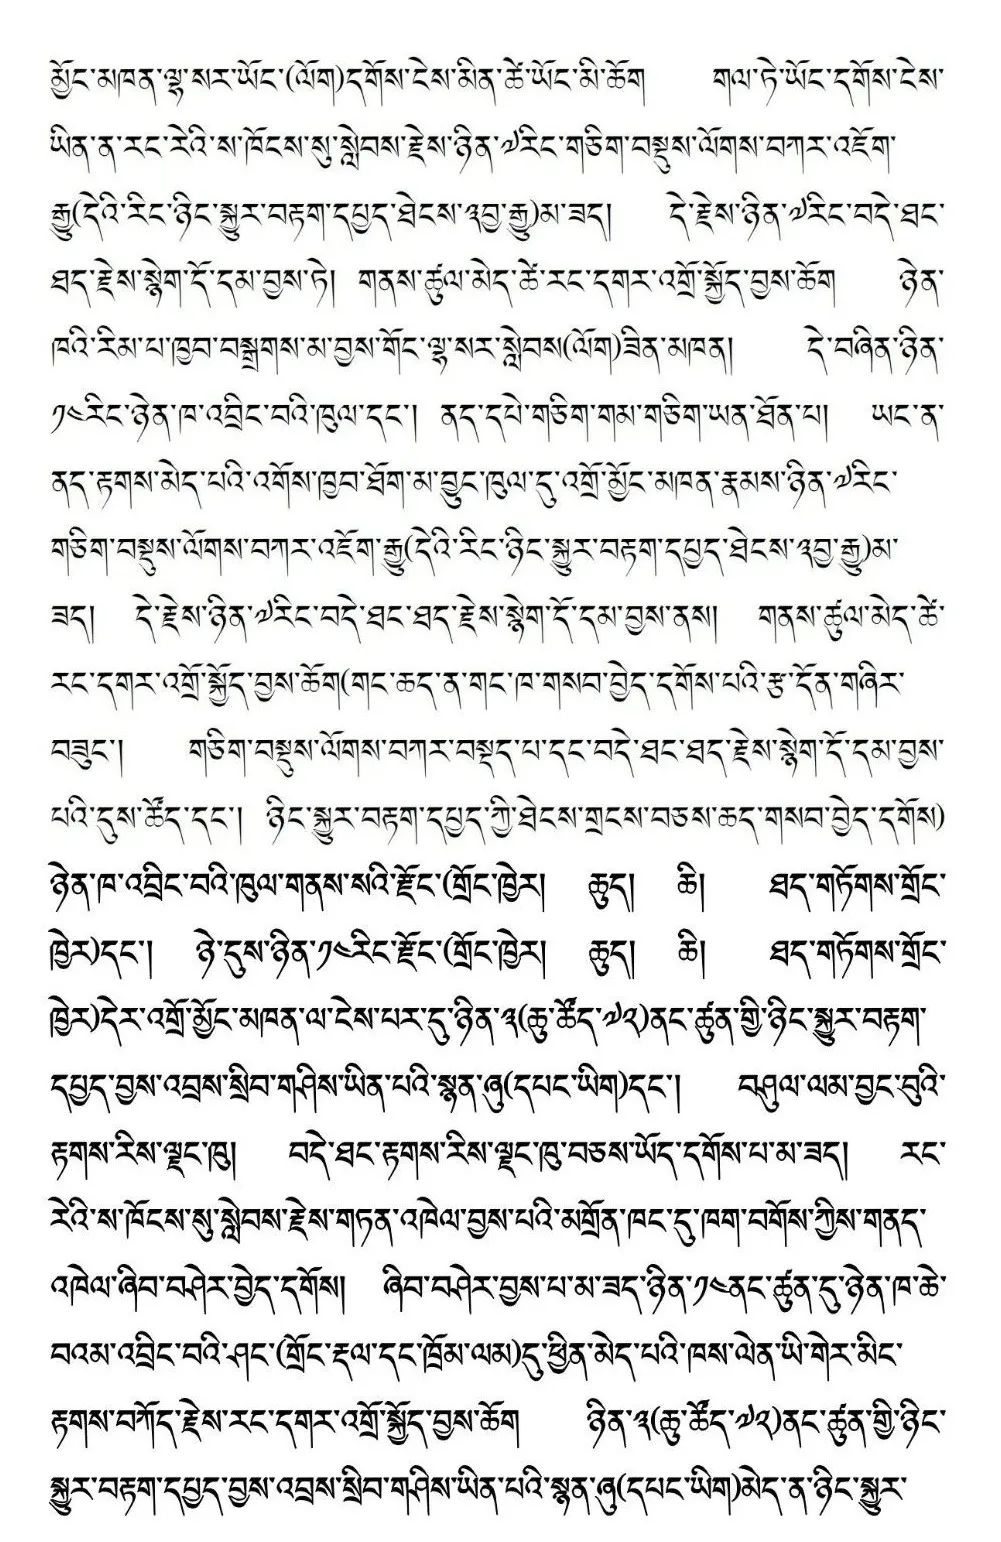 མྱོང་མཁན་ལྷ་སར་ཡོང་(ལོག)དགོས་ངེས་མིན་ཚེ་ཡོང་མི་ཆོག གལ་ཏེ་ཡོང་དགོས་ངེས་
ཡིན་ན་རང་རེའི་ས་ཁོངས་སུ་སླེབས་རྗེས་ཉིན་༧རིང་གཅིག་བསྡུས་ལོགས་བཀར་འཇོག་
རྒྱུ(དེའི་རིང་ཉིང་སྐྱུར་བརྟག་དཔྱད་ཐེངས་༣བྱ་རྒྱུ)མ་ཟད། དེ་རྗེས་ཉིན་༧རིང་བདེ་ཐང་
ཐད་རྗེས་སྙེག་དོ་དམ་བྱས་ཏེ། གནས་ཚུལ་མེད་ཚེ་རང་དགར་འགྲོ་སྐྱོད་བྱས་ཆོག ཉེན་
ཁའི་རིམ་པ་ཁྱབ་བསྒྲགས་མ་བྱས་གོང་ལྷ་སར་སླེབས(ལོག)ཟིན་མཁན། དེ་བཞིན་ཉིན་
༡༤རིང་ཉེན་ཁ་འབྲིང་བའི་ཁུལ་དང་། ནད་དཔེ་གཅིག་གམ་གཅིག་ཡན་ཐོན་པ། ཡང་ན་
ནད་རྟགས་མེད་པའི་འགོས་ཁྱབ་ཐོག་མ་བྱུང་ཁུལ་དུ་འགྲོ་མྱོང་མཁན་རྣམས་ཉིན་༧རིང་
གཅིག་བསྡུས་ལོགས་བཀར་འཇོག་རྒྱུ(དེའི་རིང་ཉིང་སྐྱུར་བརྟག་དཔྱད་ཐེངས་༣བྱ་རྒྱུ)མ་
ཟད། དེ་རྗེས་ཉིན་༧རིང་བདེ་ཐང་ཐད་རྗེས་སྙེག་དོ་དམ་བྱས་ནས། གནས་ཚུལ་མེད་ཚེ་
རང་དགར་འགྲོ་སྐྱོད་བྱས་ཆོག(གང་ཆད་ན་གང་ཁ་གསབ་བྱེད་དགོས་པའི་རྩ་དོན་གཞིར་
བཟུང་། གཅིག་བསྡུས་ལོགས་བཀར་བསྡད་པ་དང་བདེ་ཐང་ཐད་རྗེས་སྙེག་དོ་དམ་བྱས་
པའི་དུས་ཚོད་དང་། ཉིང་སྐྱུར་བརྟག་དཔྱད་ཀྱི་ཐེངས་གྲངས་བཅས་ཆད་གསབ་བྱེད་དགོས)
ཉེན་ཁ་འབྲིང་བའི་ཁུལ་གནས་སའི་རྫོང་(གྲོང་ཁྱེར། ཆུད། ཆི། ཐད་གཏོགས་གྲོང་
ཁྱེར)དང་། ཉེ་དུས་ཉིན་༡༤རིང་རྫོང་(གྲོང་ཁྱེར། ཆུད། ཆི། ཐད་གཏོགས་གྲོང་
ཁྱེར)དེར་འགྲོ་མྱོང་མཁན་ལ་ངེས་པར་དུ་ཉིན་༣(ཆུ་ཚོད་༧༢)ནང་ཚུན་གྱི་ཉིང་སྐྱུར་བརྟག་
དཔྱད་བྱས་འབྲས་སྲིབ་གཤིས་ཡིན་པའི་སྙན་ཞུ(དཔང་ཡིག)དང་། བཤུལ་ལམ་བྱང་བུའི་
རྟགས་རིས་ལྗང་ཁུ། བདེ་ཐང་རྟགས་རིས་ལྗང་ཁུ་བཅས་ཡོད་དགོས་པ་མ་ཟད། རང་
རེའི་ས་ཁོངས་སུ་སླེབས་རྗེས་གཏན་འཁེལ་བྱས་པའི་མགྲོན་ཁང་དུ་ཁག་བགོས་ཀྱིས་གནད་
འཁེལ་ཞིབ་བཤེར་བྱེད་དགོས། ཞིབ་བཤེར་བྱས་པ་མ་ཟད་ཉིན་༡༤ནང་ཚུན་དུ་ཉེན་ཁ་ཆེ་
བའམ་འབྲིང་བའི་ཤང་(གྲོང་རྡལ་དང་ཁྲོམ་ལམ)དུ་ཕྱིན་མེད་པའི་ཁས་ལེན་ཡི་གེར་མིང་
རྟགས་བཀོད་རྗེས་རང་དགར་འགྲོ་སྐྱོད་བྱས་ཆོག ཉིན་༣(ཆུ་ཚོད་༧༢)ནང་ཚུན་གྱི་ཉིང་
སྐྱུར་བརྟག་དཔྱད་བྱས་འབྲས་སྲིབ་གཤིས་ཡིན་པའི་སྙན་ཞུ(དཔང་ཡིག)མེད་ན་ཉིང་སྐྱུར་